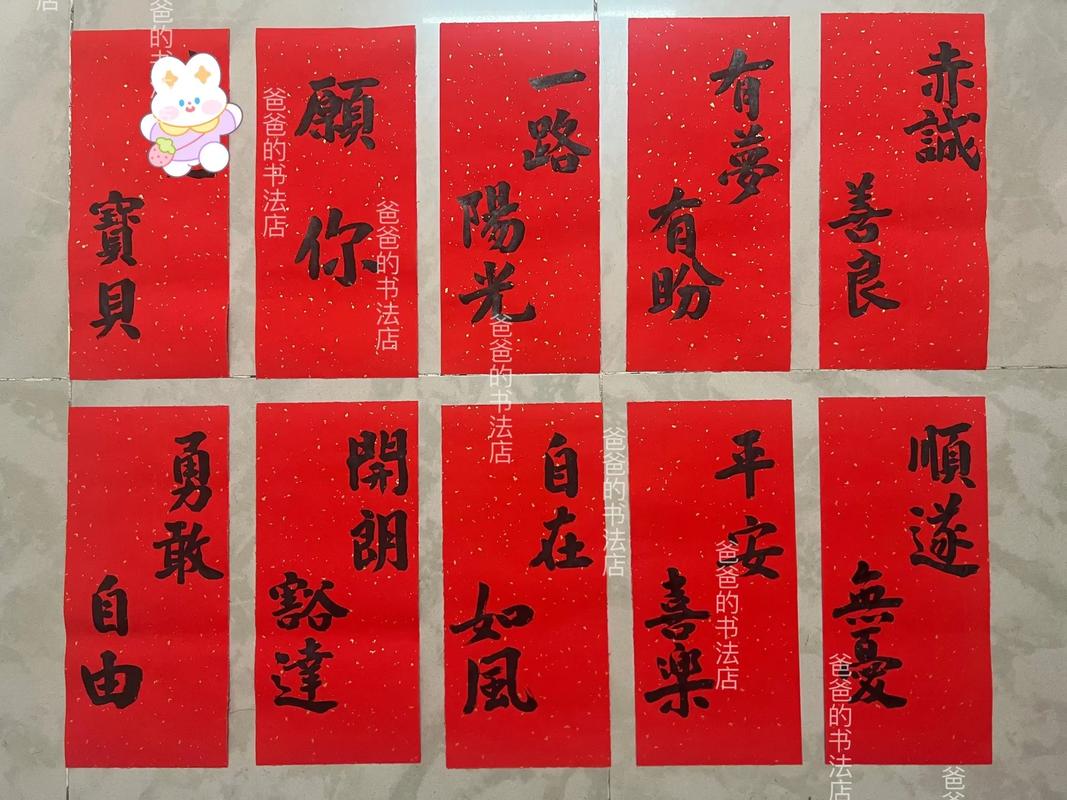 寶貝
願你
一路
陽光
有夢
有盼
赤誠
善良
勇敢
自由
開朗
豁達
自在
如風
平安
喜樂
順遂
無憂
爸爸的书法店
爸爸的书法店
爸爸的书法店
爸爸的书法店
爸爸的书法店
爸爸的书法店